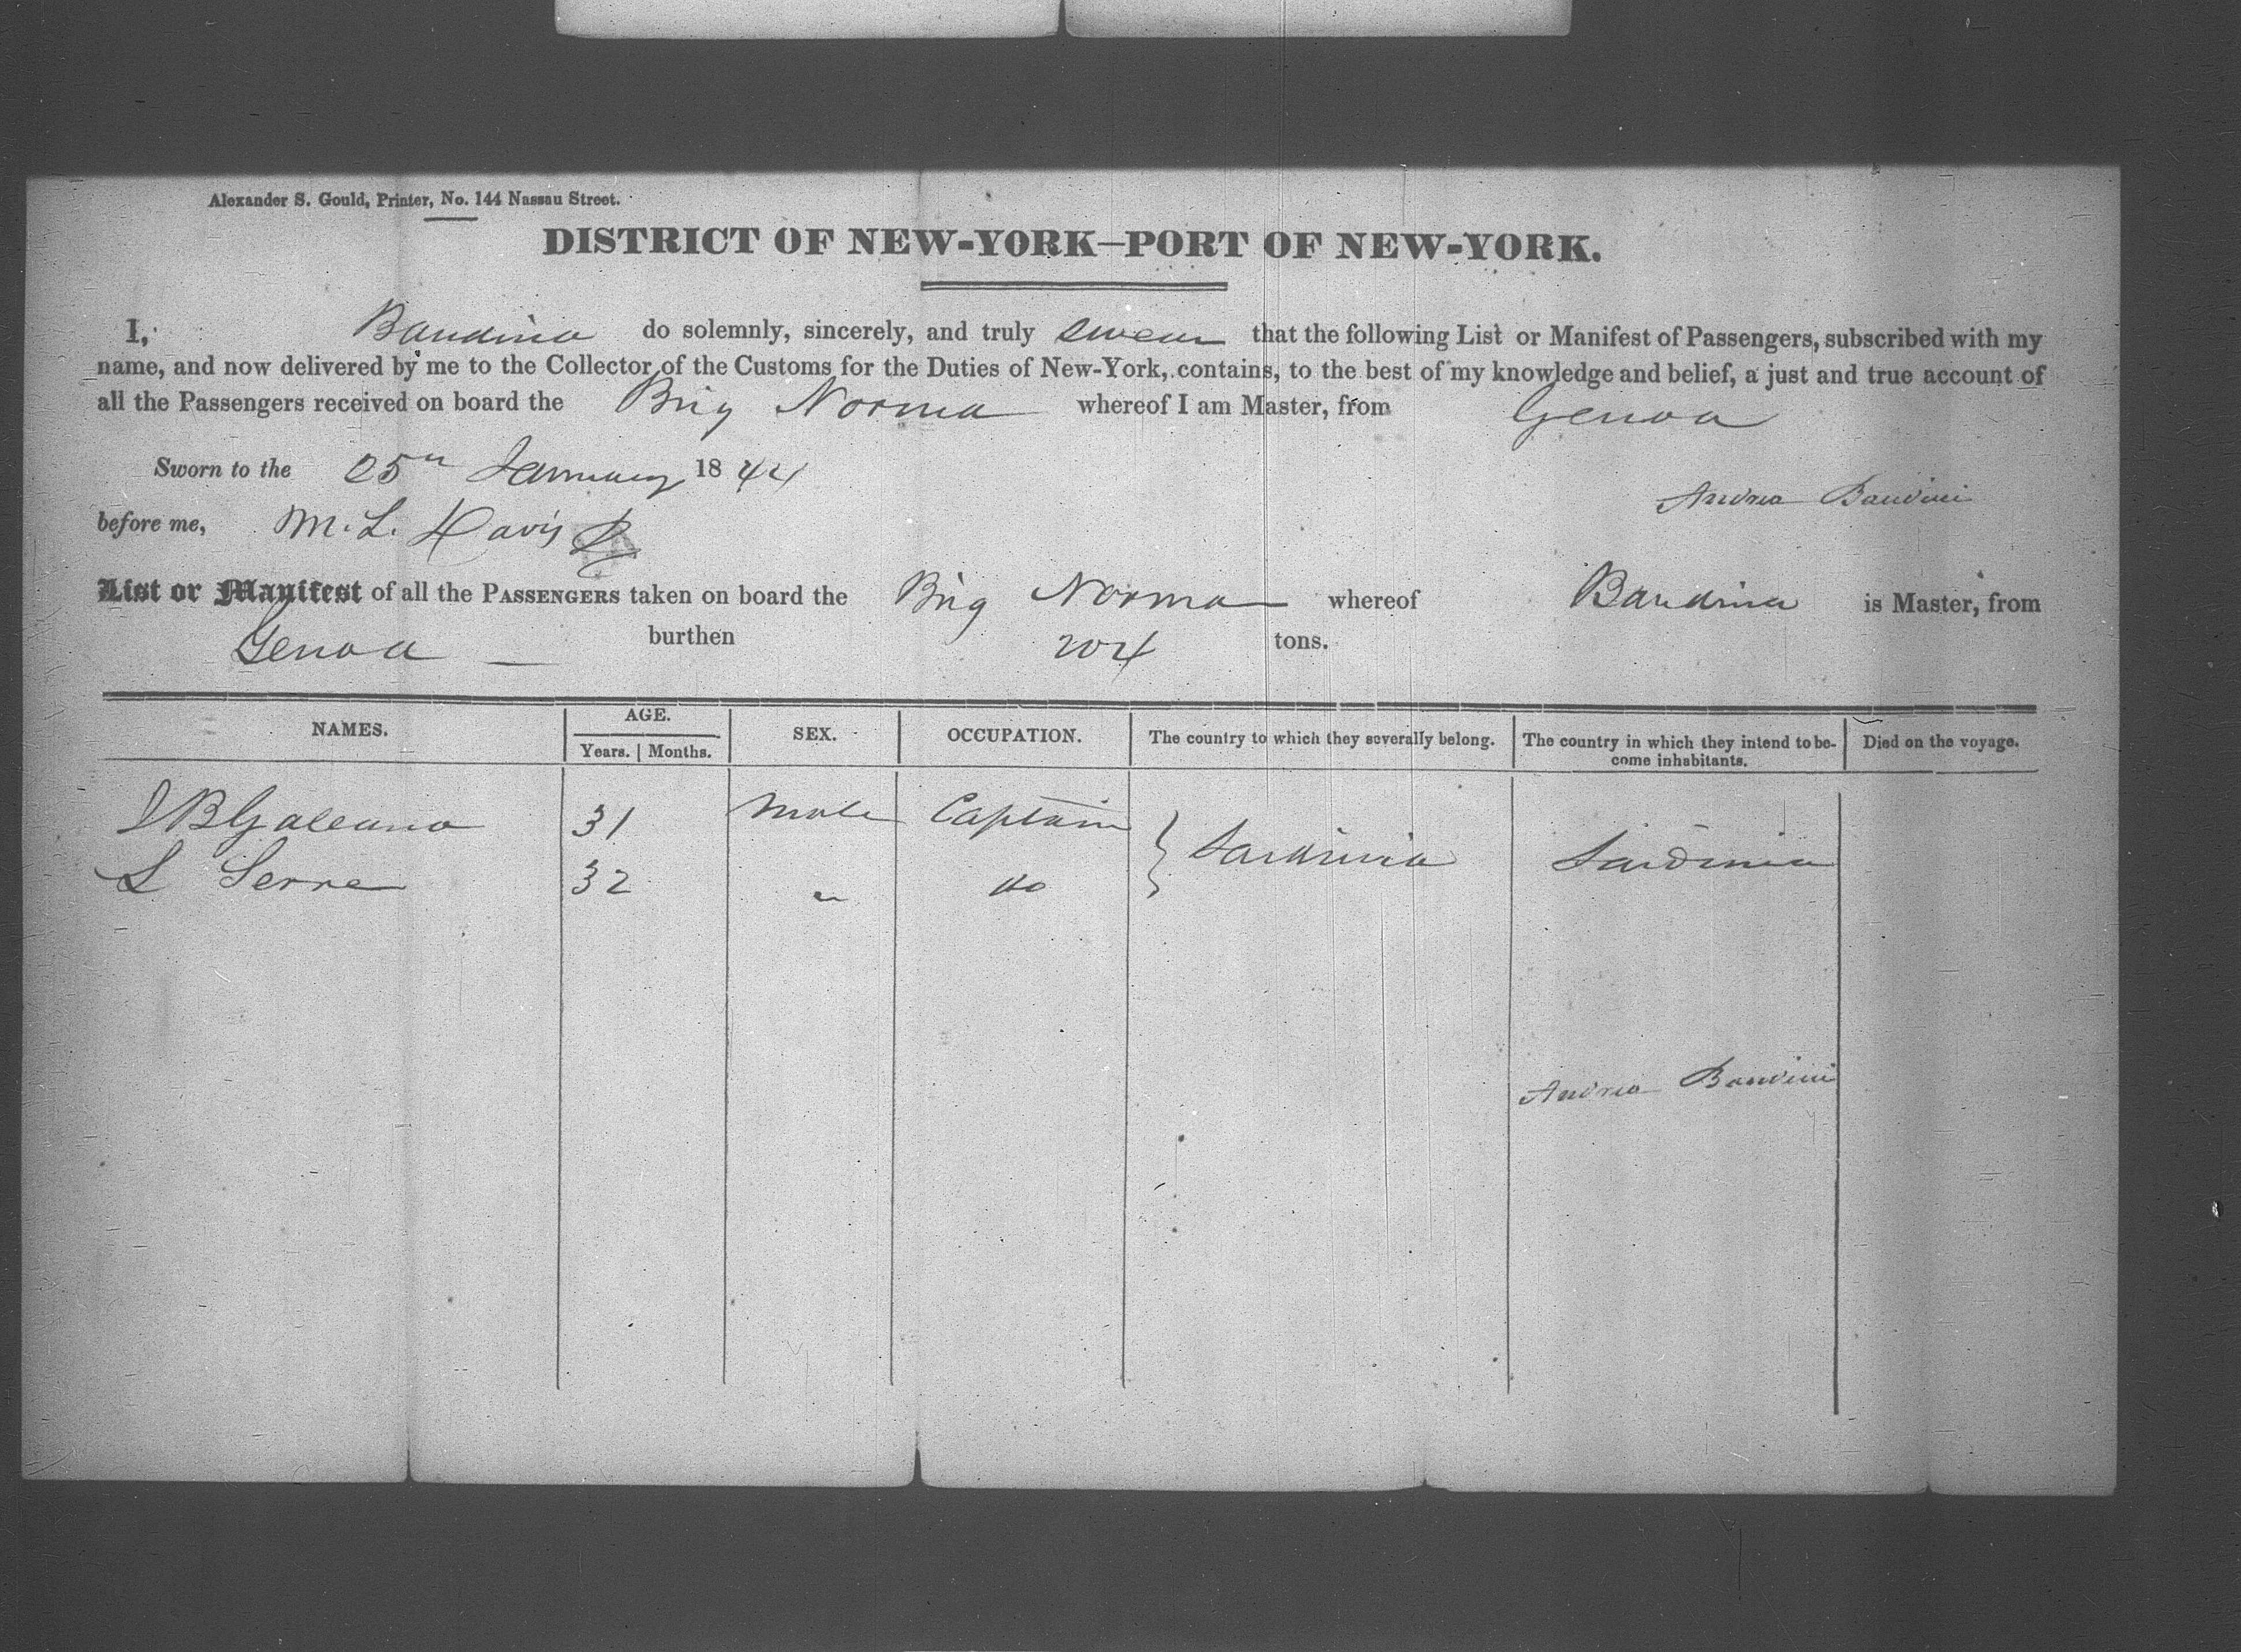 Alexander S. Gould, Printer, No. 144 Nassau Street.
DISTRICT OF NEW-YORK—PORT OF NEW-YORK.
I, Bandina do solemnly, sincerely, and truly swear that the following List or Manifest of Passengers, subscribed with my
name, and now delivered by me to the Collector of the Customs for the Duties of New-York, contains, to the best of my knowledge and belief, a just and true account of
all the Passengers received on board the Brig Norma whereof I am Master, from Genoa
Sworn to the 25th January 1844
Andrea Bandini
before me, M. L. Davis
List or Manifest of all the PASSENGERS taken on board the Brig Norma whereof Bandina is Master, from
Genoa burthen 204 tons.
NAMES. AGE. SEX. OCCUPATION. The country to which they severally belong. The country in which they intend to be- Died on the voyage.
Years. | Months. come inhabitants.
J B Galeano 31 Male Captain Sardinia Sardinia
L Serra 32 " do
Andrea Bandini